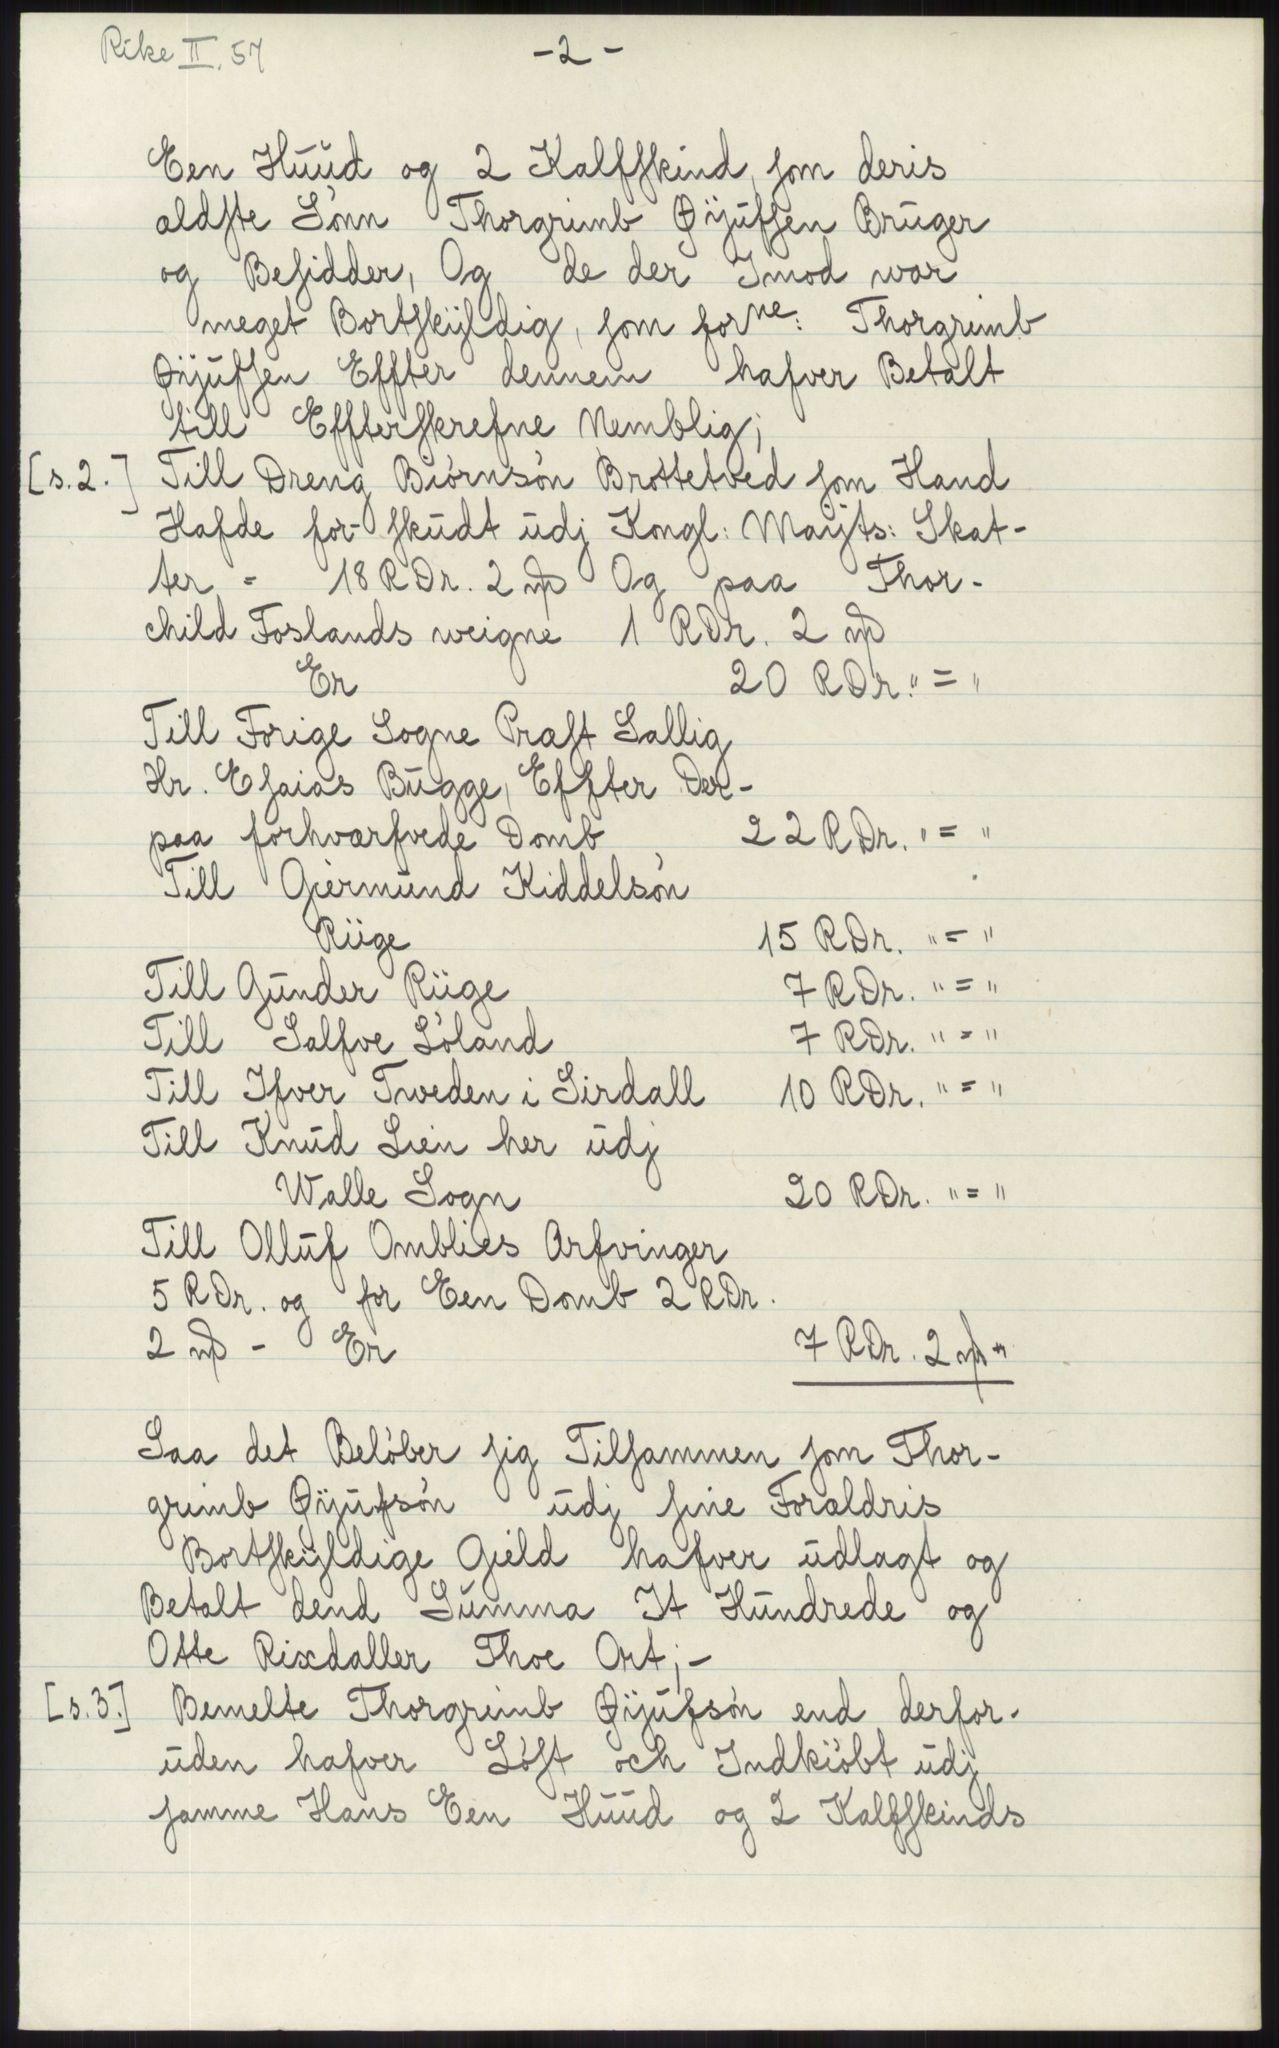 Rike II, 57
-2-
Een Huud og 2 Kalffskind, som deris
ældste Sónn Thorgrimb Øÿufssen Bruger
og Besidder, Og de der Imod war
meget Bortskÿldig, som forne: Thorgrimb
Øÿufssen Effter dennem hafver Betalt
till Effterskrefne Nemblig;
[s.2.] Till Dreng Biórnsón Brottetved som Hand
Hafde for-skudt udj Kongl: Maÿts: Skat-
ter - 18 RDr. 2 mß Og paa Thor-
child Foslands weigne 1 RDr. 2 mß
Er 20 RDr. " = "
Till Forige Sogne Præst Sallig
Hr. Esaias Bugge, Effter Der-
paa forhværfvede Domb 22 RDr. " = "
Till Giermund Kiddelsón
Riige 15 RDr. " = "
Till Gunder Riige 7 RDr. " = "
Till Salfve Lóland 7 RDr. " = "
Till Ifver Tweden i Sirdall 10 RDr. " = "
Till Knud Lien her udj
Walle Sogn 20 RDr. " = "
Till Olluf Omblies Arfvinger
5 RDr. og for Een Domb 2 RDr.
2 mß - Er 7 RDr. 2 mß "
Saa det Belóber sig Tilsammen som Thor-
grimb Øÿufsón udj sine Foræeldris
Bortskÿldige Gield hafver udlagt og
Betalt dend Summa It Hundrede og
Otte Rixdaller Thoe Ort;-
[s.3.] Bemelte Thorgrimb Øÿufsón end derfor-
uden hafver Lóst och Indkióbt udj
samme Hans Een Huud og 2 Kalffskinds